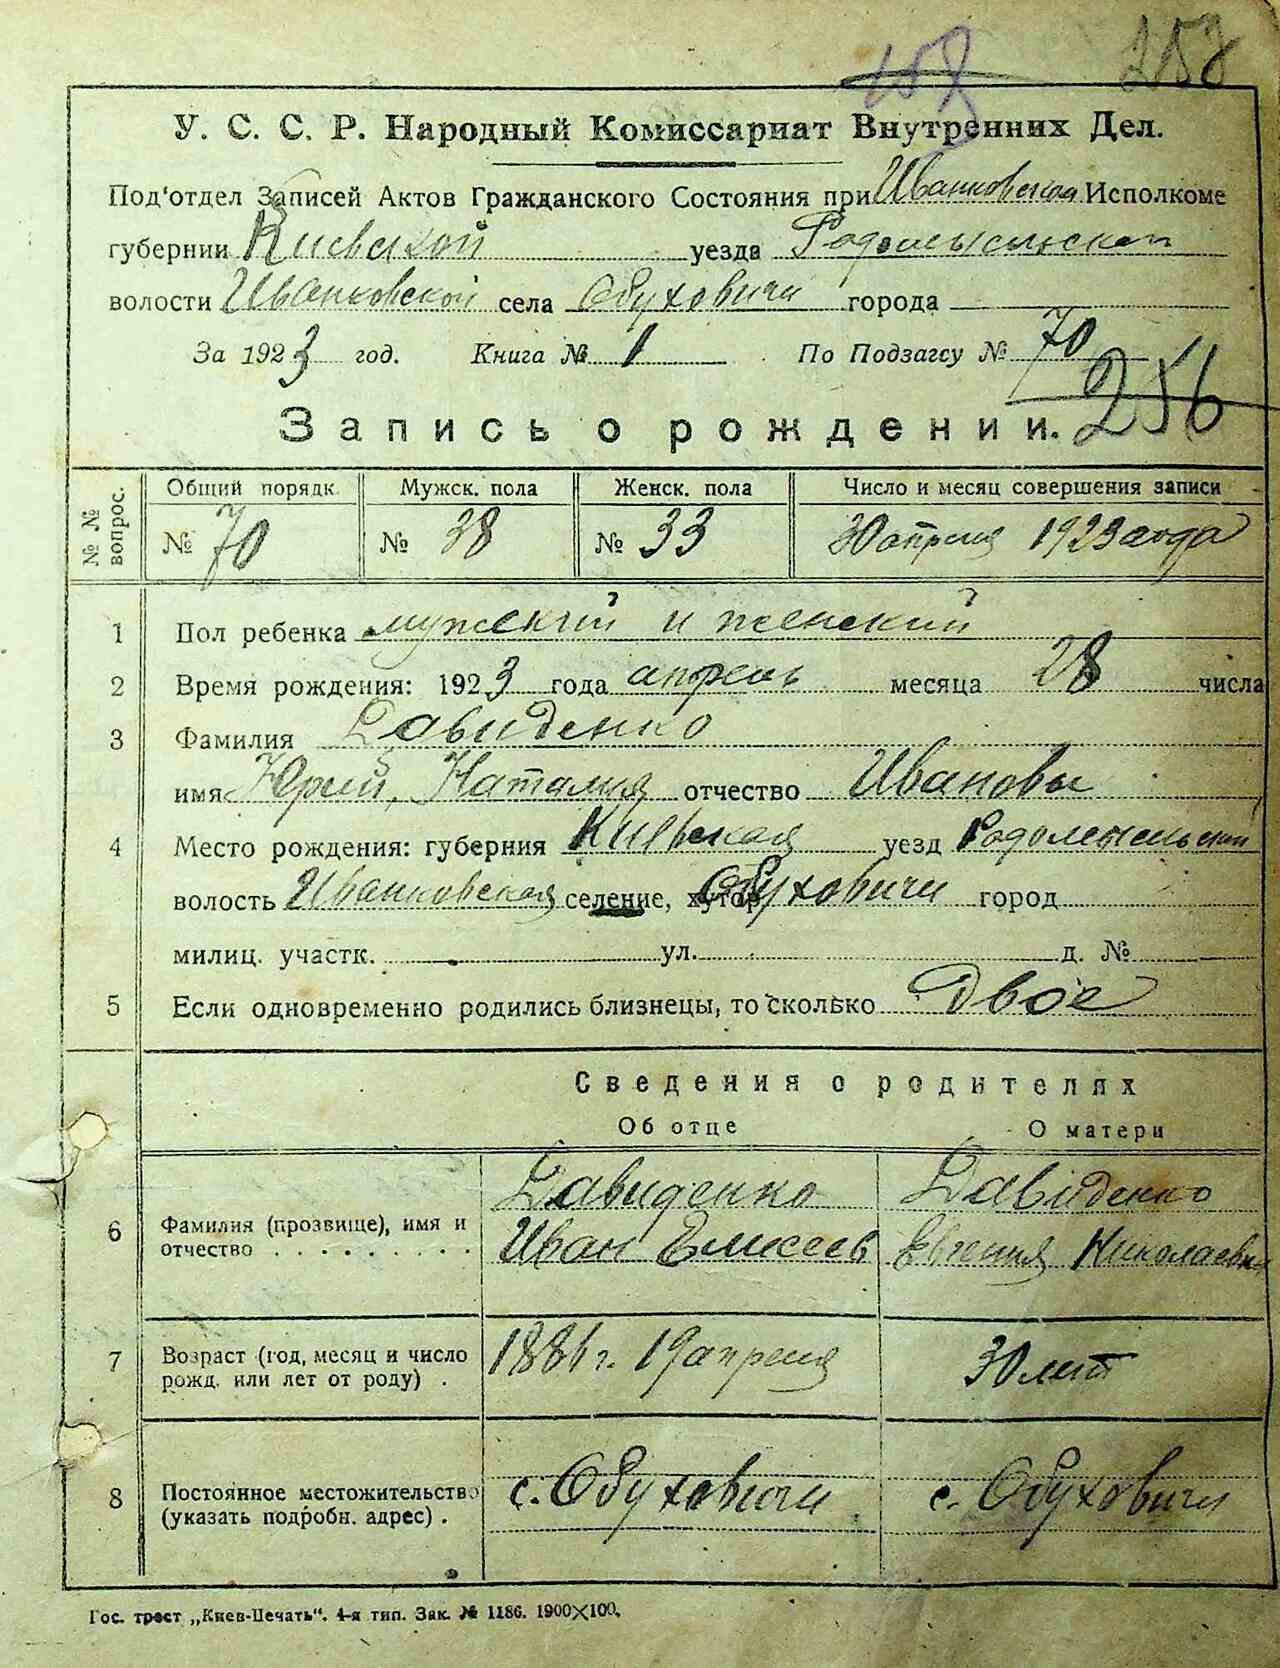 158 258
У. С. С. Р. Народный Комиссариат Внутренних Дел.
Под'отдел Записей Актов Гражданского Состояния при Иванковском Исполкоме
губернии Киевской уезда Радомысльского
волости Иванковской села Обуховичи города
За 1923 год. Книга № 1 По Подзагсу № 70
256
Запись о рождении.
№ № вопрос. Общий порядк. Мужск. пола Женск. пола Число и месяц совершения записи
№ 70 № 38 № 33 30 апреля 1923 года
1 Пол ребенка мужский и женский
2 Время рождения: 1923 года апрель месяца 28 числа
3 Фамилия Давиденко
имя Юрий, Наталия отчество Ивановы
4 Место рождения: губерния Киевская уезд Радомысльский
волость Иванковская селение, хутор Обуховичи город
милиц. участк. ул. д. №
5 Если одновременно родились близнецы, то сколько Двое
Сведения о родителях
Об отце О матери
Давиденко Давиденко
6 Фамилия (прозвище), имя и Иван Елисеев Евгения Николаевна
отчество . . . . . . . . .
7 Возраст (год, месяц и число 1881 г. 19 апреля 30 лет
рожд. или лет от роду) .
8 Постоянное местожительство с. Обуховичи с. Обуховичи
(указать подробн. адрес) .
Гос. трест „Киев-Печать". 4-я тип. Зак. № 1186. 1900×100.